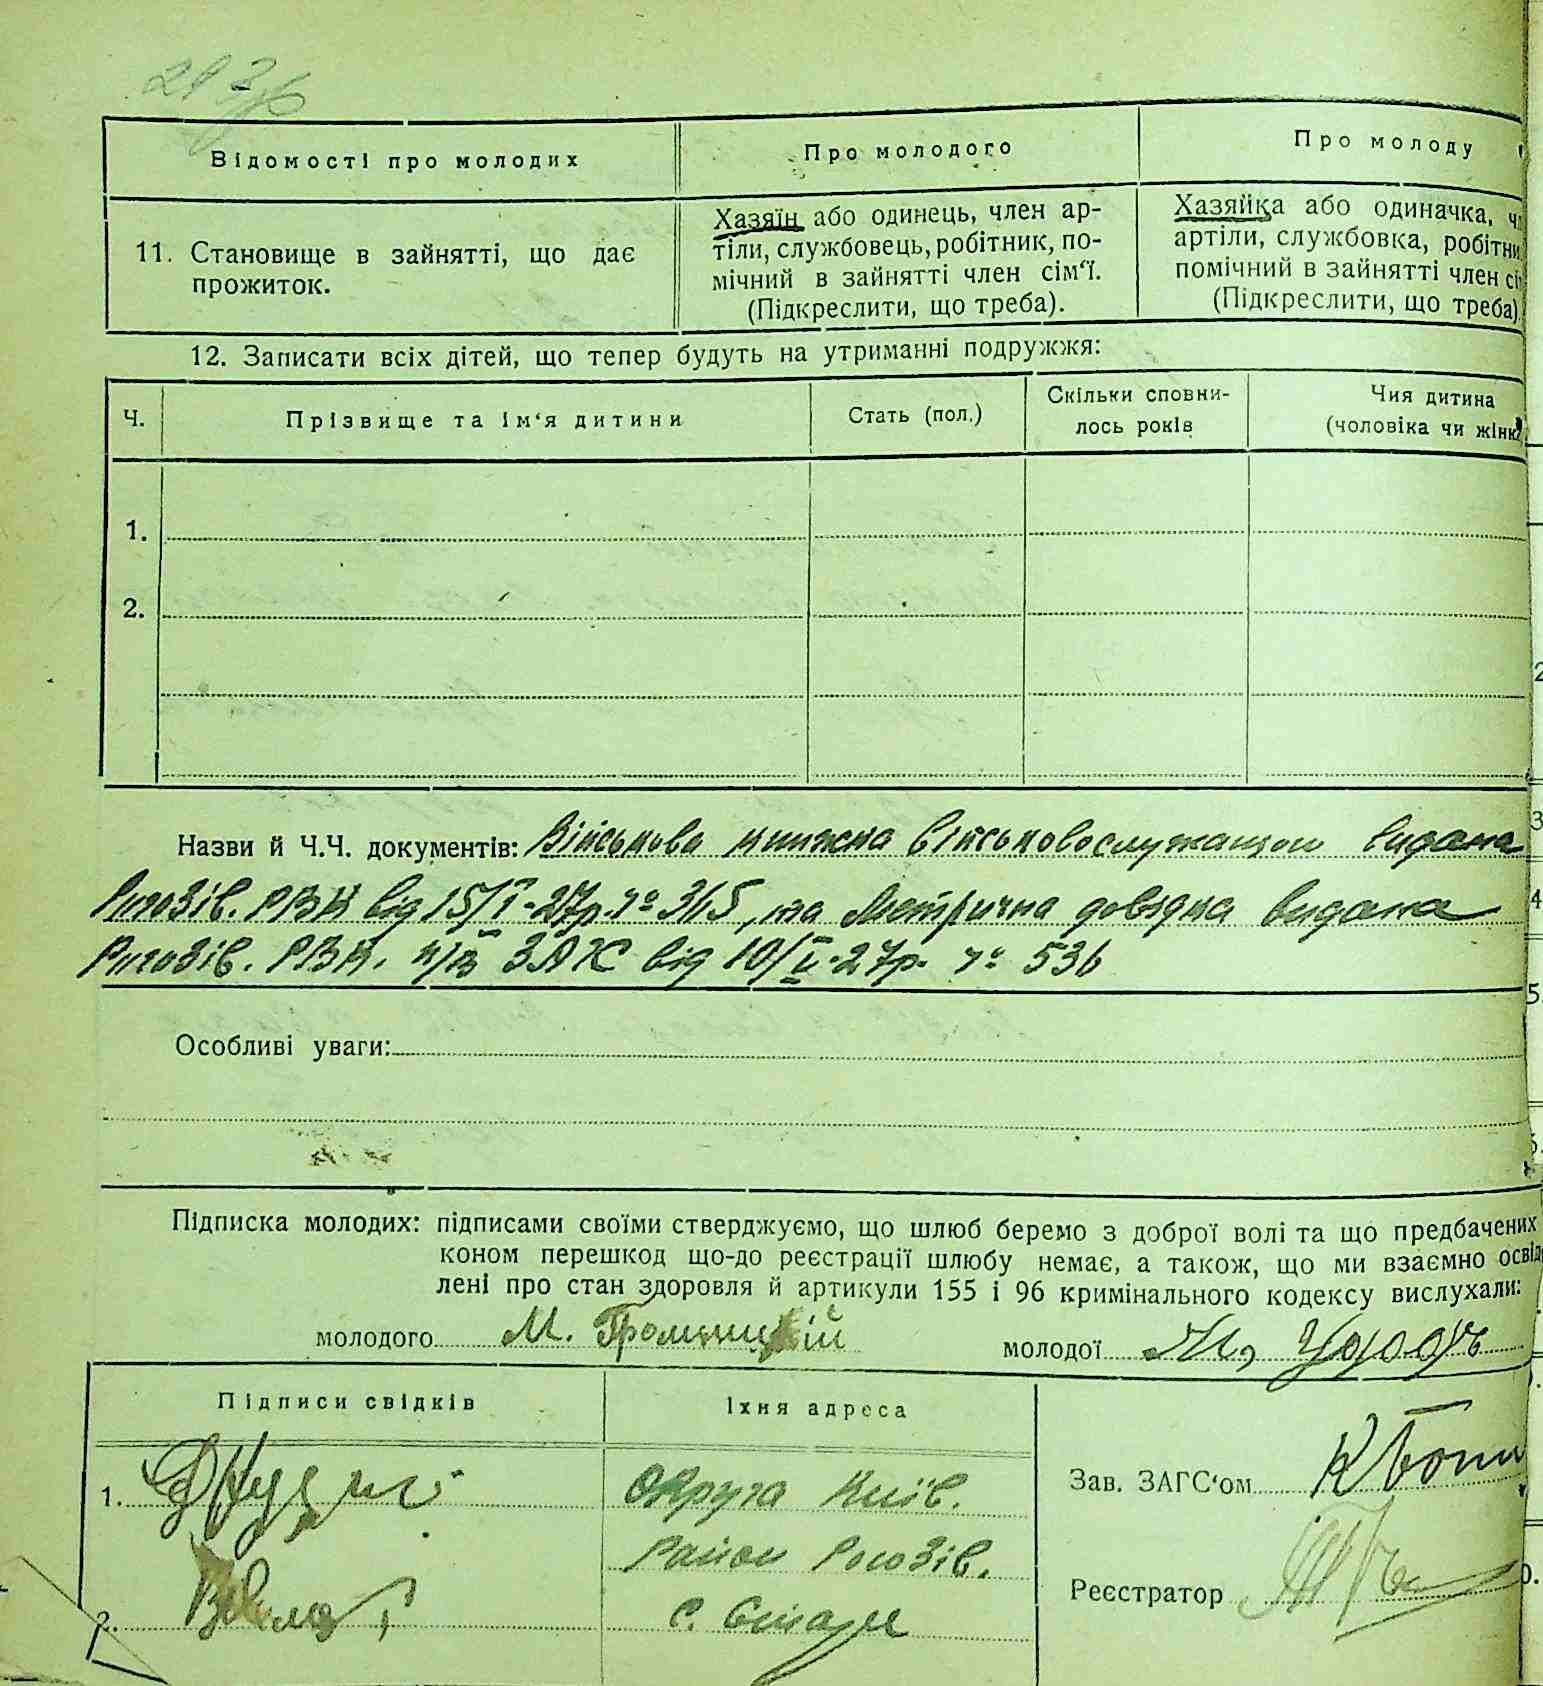 293
Відомості про молодих
Про молодого
Про молоду
11. Становище в зайнятті, що дає
прожиток.
Хазяїн або одинець, член ар-
тіли, службовець, робітник, по-
мічний в зайнятті член сім'ї.
(Підкреслити, що треба).
Хазяйка або одиначка, ч
артіли, службовка, робітни
помічний в зайнятті член сі
(Підкреслити, що треба)
12. Записати всіх дітей, що тепер будуть на утриманні подружжя:
Ч.
Прізвище та ім'я дитини
Стать (пол.)
Скільки сповни-
лось років
Чия дитина
(чоловіка чи жінк
1.
2.
Назви й Ч.Ч. документів: Військова книжка військовослужащого видана
Рогозів. РВК від 15/І-27р. № 315, та Метрична довідка видана
Рогозів. РВК. п/в ЗАК від 10/ІІ-27р. № 536
Особливі уваги:
Підписка молодих: підписами своїми стверджуємо, що шлюб беремо з доброї волі та що предбачених
коном перешкод що-до реєстрації шлюбу немає, а також, що ми взаємно освід
лені про стан здоровля й артикули 155 і 96 кримінального кодексу вислухали:
молодого М. Громницький
молодої
Підписи свідків
Їхня адреса
1.
Округа Київ.
Район Рогозів.
2.
С.
Зав. ЗАГС'ом
Реєстратор